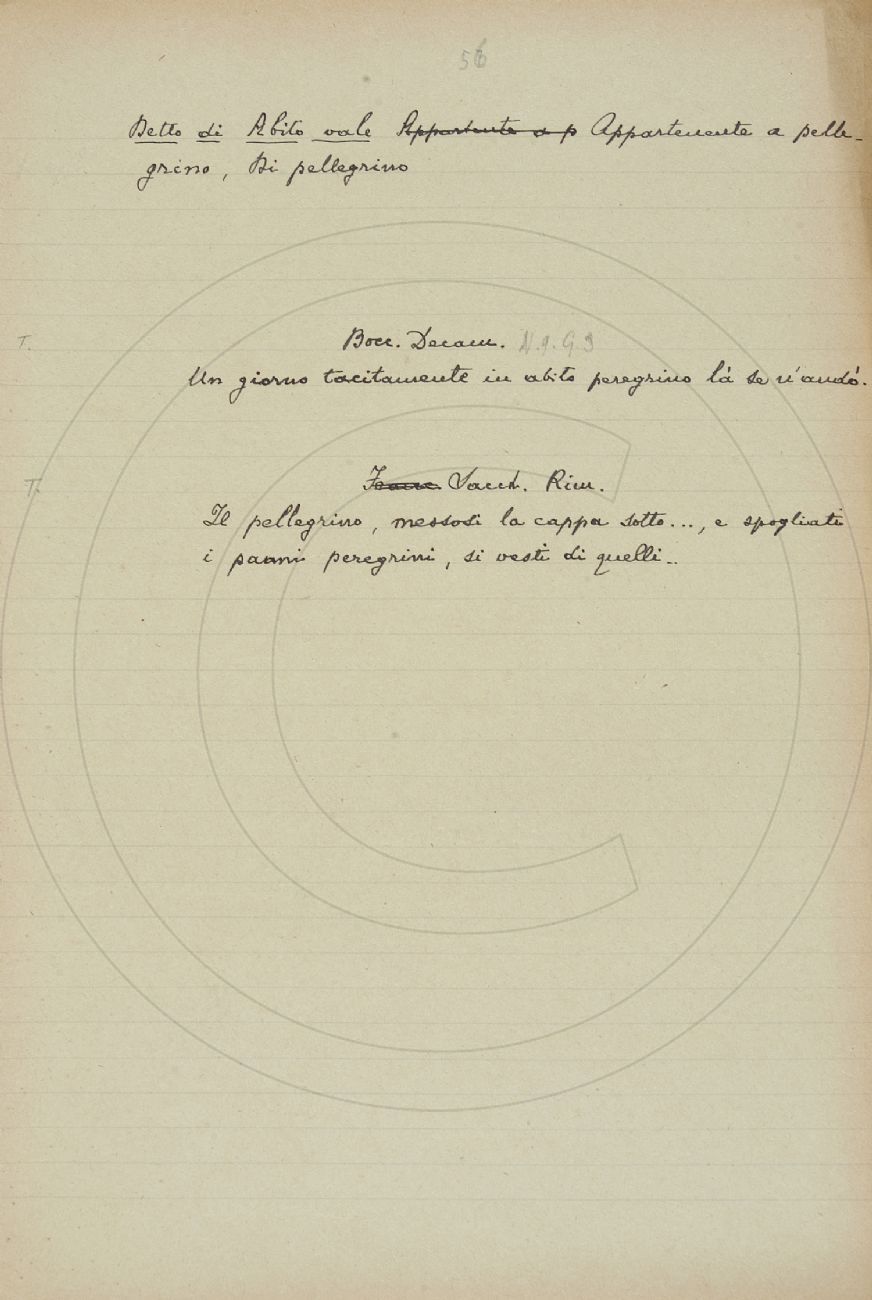 56
Detto di Abito vale Appartente a p Appartenente a pelle-
grino, Di pellegrino
T. Bocc. Decam. N. 9. G 3
Un giorno tacitamente in abito peregrino là se n'andò.
T. Sacch. Rim.
Il pellegrino, messosi la cappa sotto..., e spogliati
i panni peregrini, si vestì di quelli..